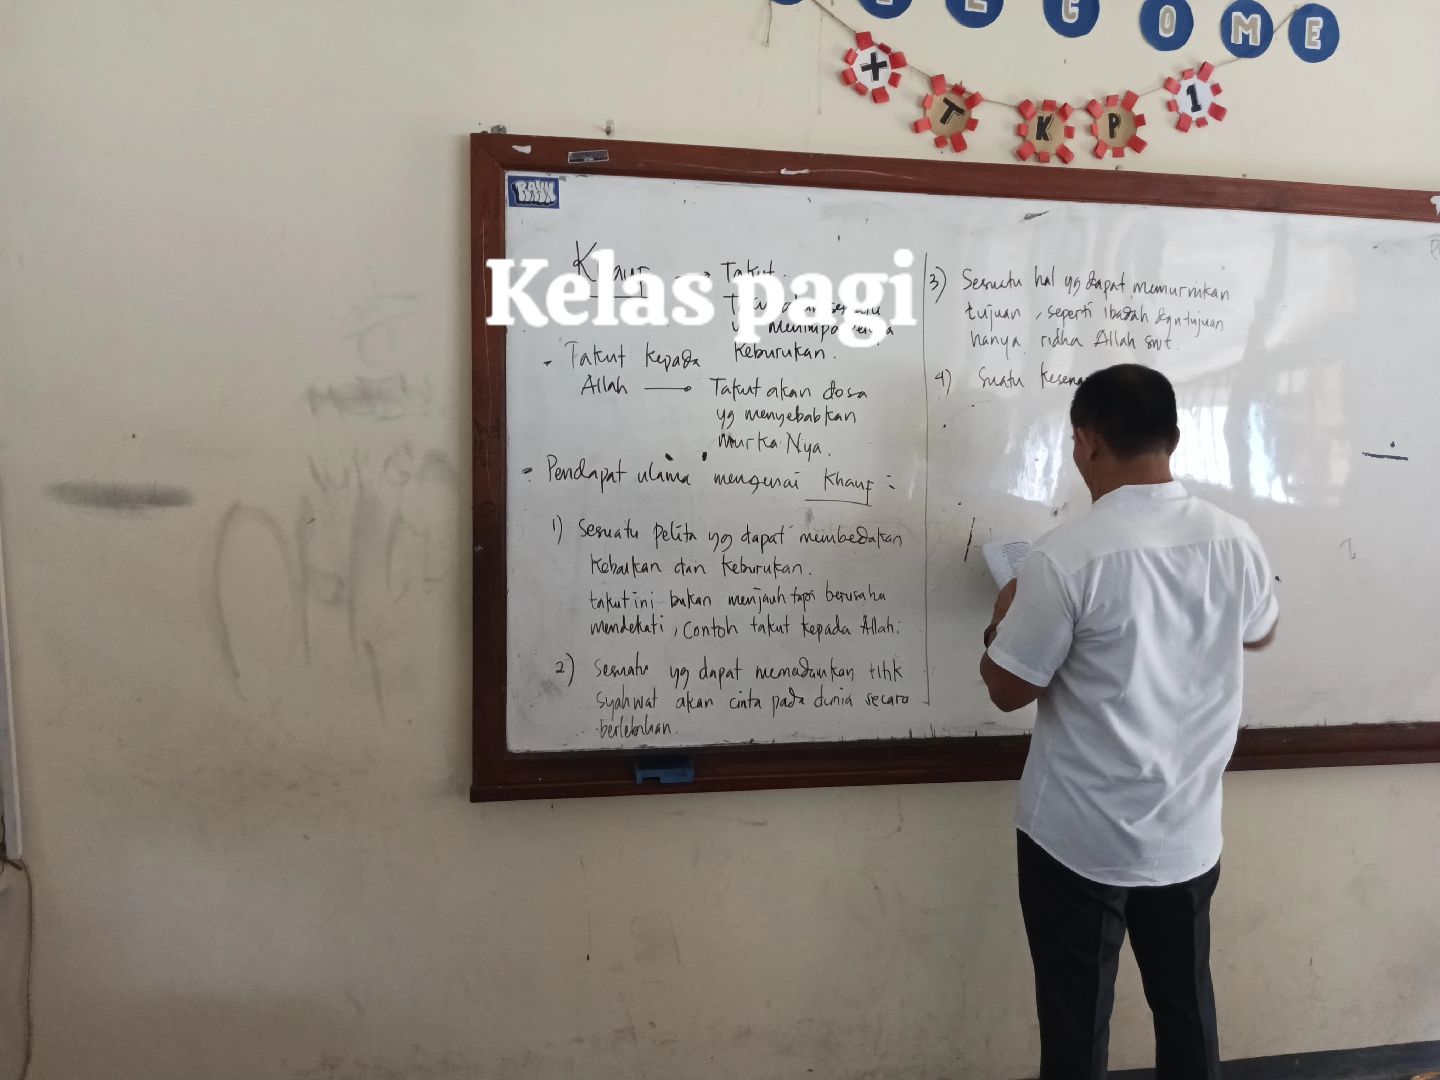 WELCOME
+ TKP 1
RAYN
Kelas pagi
Khauf → Takut
menimpa
keburukan.
- Takut kepada
Allah → Takut akan dosa
yg menyebabkan
murka Nya.
- Pendapat ulama mengenai Khauf :
1) Sesuatu pelita yg dapat membedakan
kebaikan dan keburukan.
takut ini bukan menjauh tapi berusaha
mendekati, contoh takut kepada Allah.
2) Sesuatu yg dapat memadamkan titik
syahwat akan cinta pada dunia secara
berlebihan.
3) Sesuatu hal yg dapat memurnikan
tujuan, seperti ibadah dgn tujuan
hanya ridha Allah swt.
4) Suatu